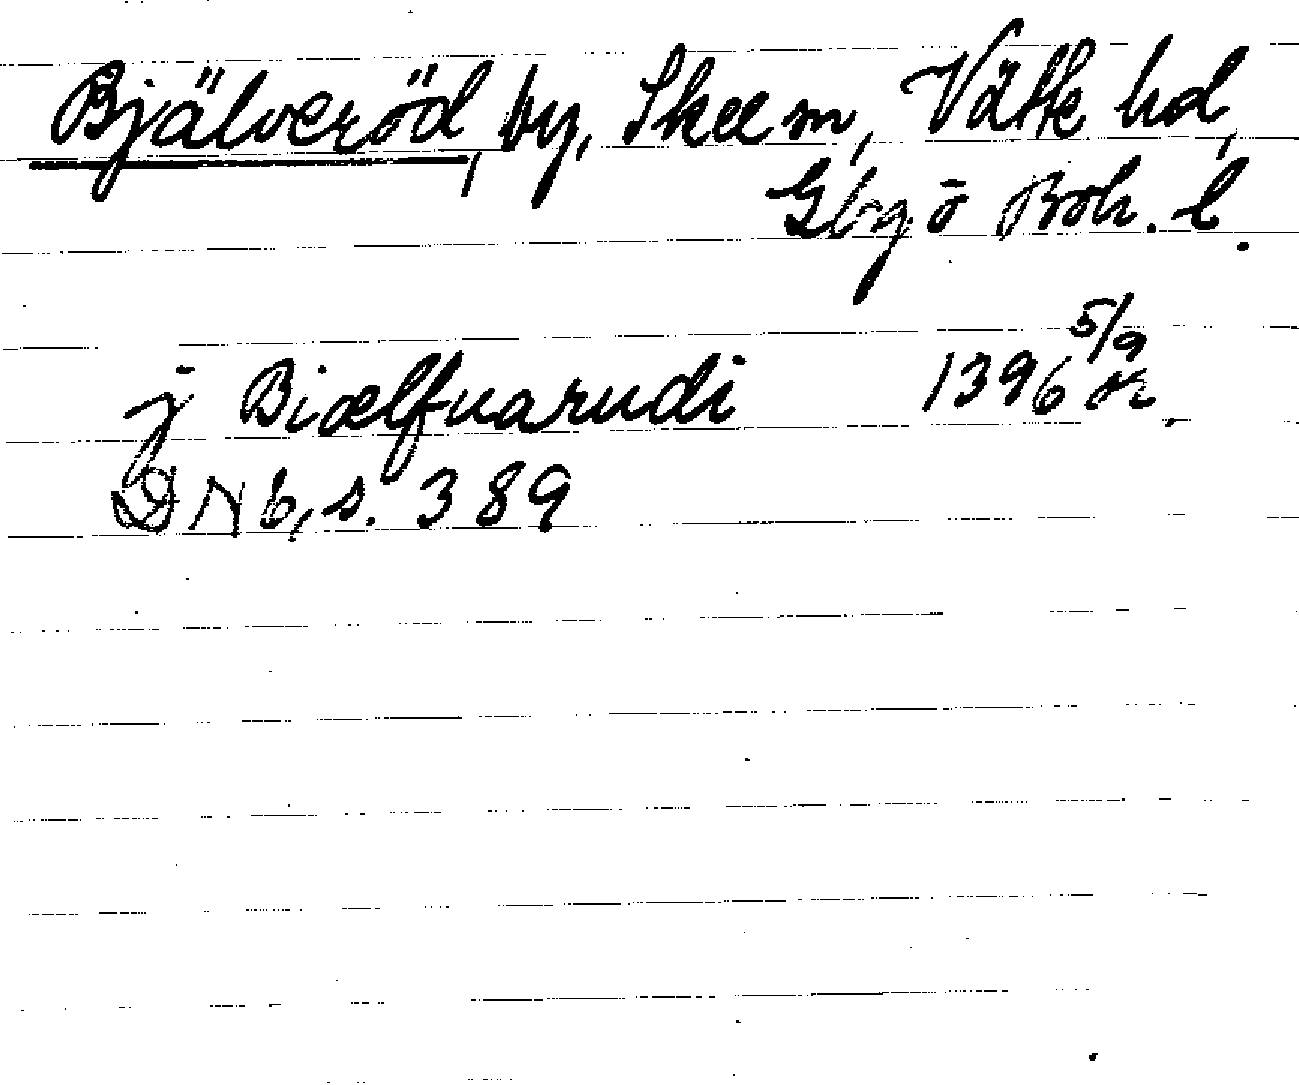 Bjälveröd, by, Skee sn, Vätte hd,
Gbg. o Boh. l.
j Biælfuarudi 1396 5/9 or.
DN 6, s. 389